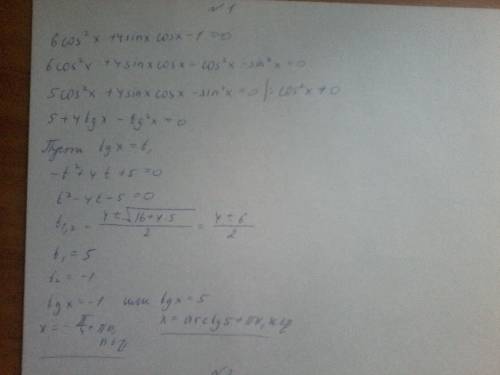 №1
6cos²x + 4sinx cosx - 1 = 0
6cos²x + 4sinx cosx - cos²x - sin²x = 0
5cos²x + 4sinx cosx - sin²x = 0 |: cos²x ≠ 0
5 + 4tgx - tg²x = 0
Пусть tgx = t,
-t² + 4t + 5 = 0
t² - 4t - 5 = 0
t₁,₂ = (4 ± √(16+4·5))/2 = (4 ± 6)/2
t₁ = 5
t₂ = -1
tgx = -1 или tgx = 5
x = -π/4 + πn, n∈Z x = arctg5 + πn, n∈Z